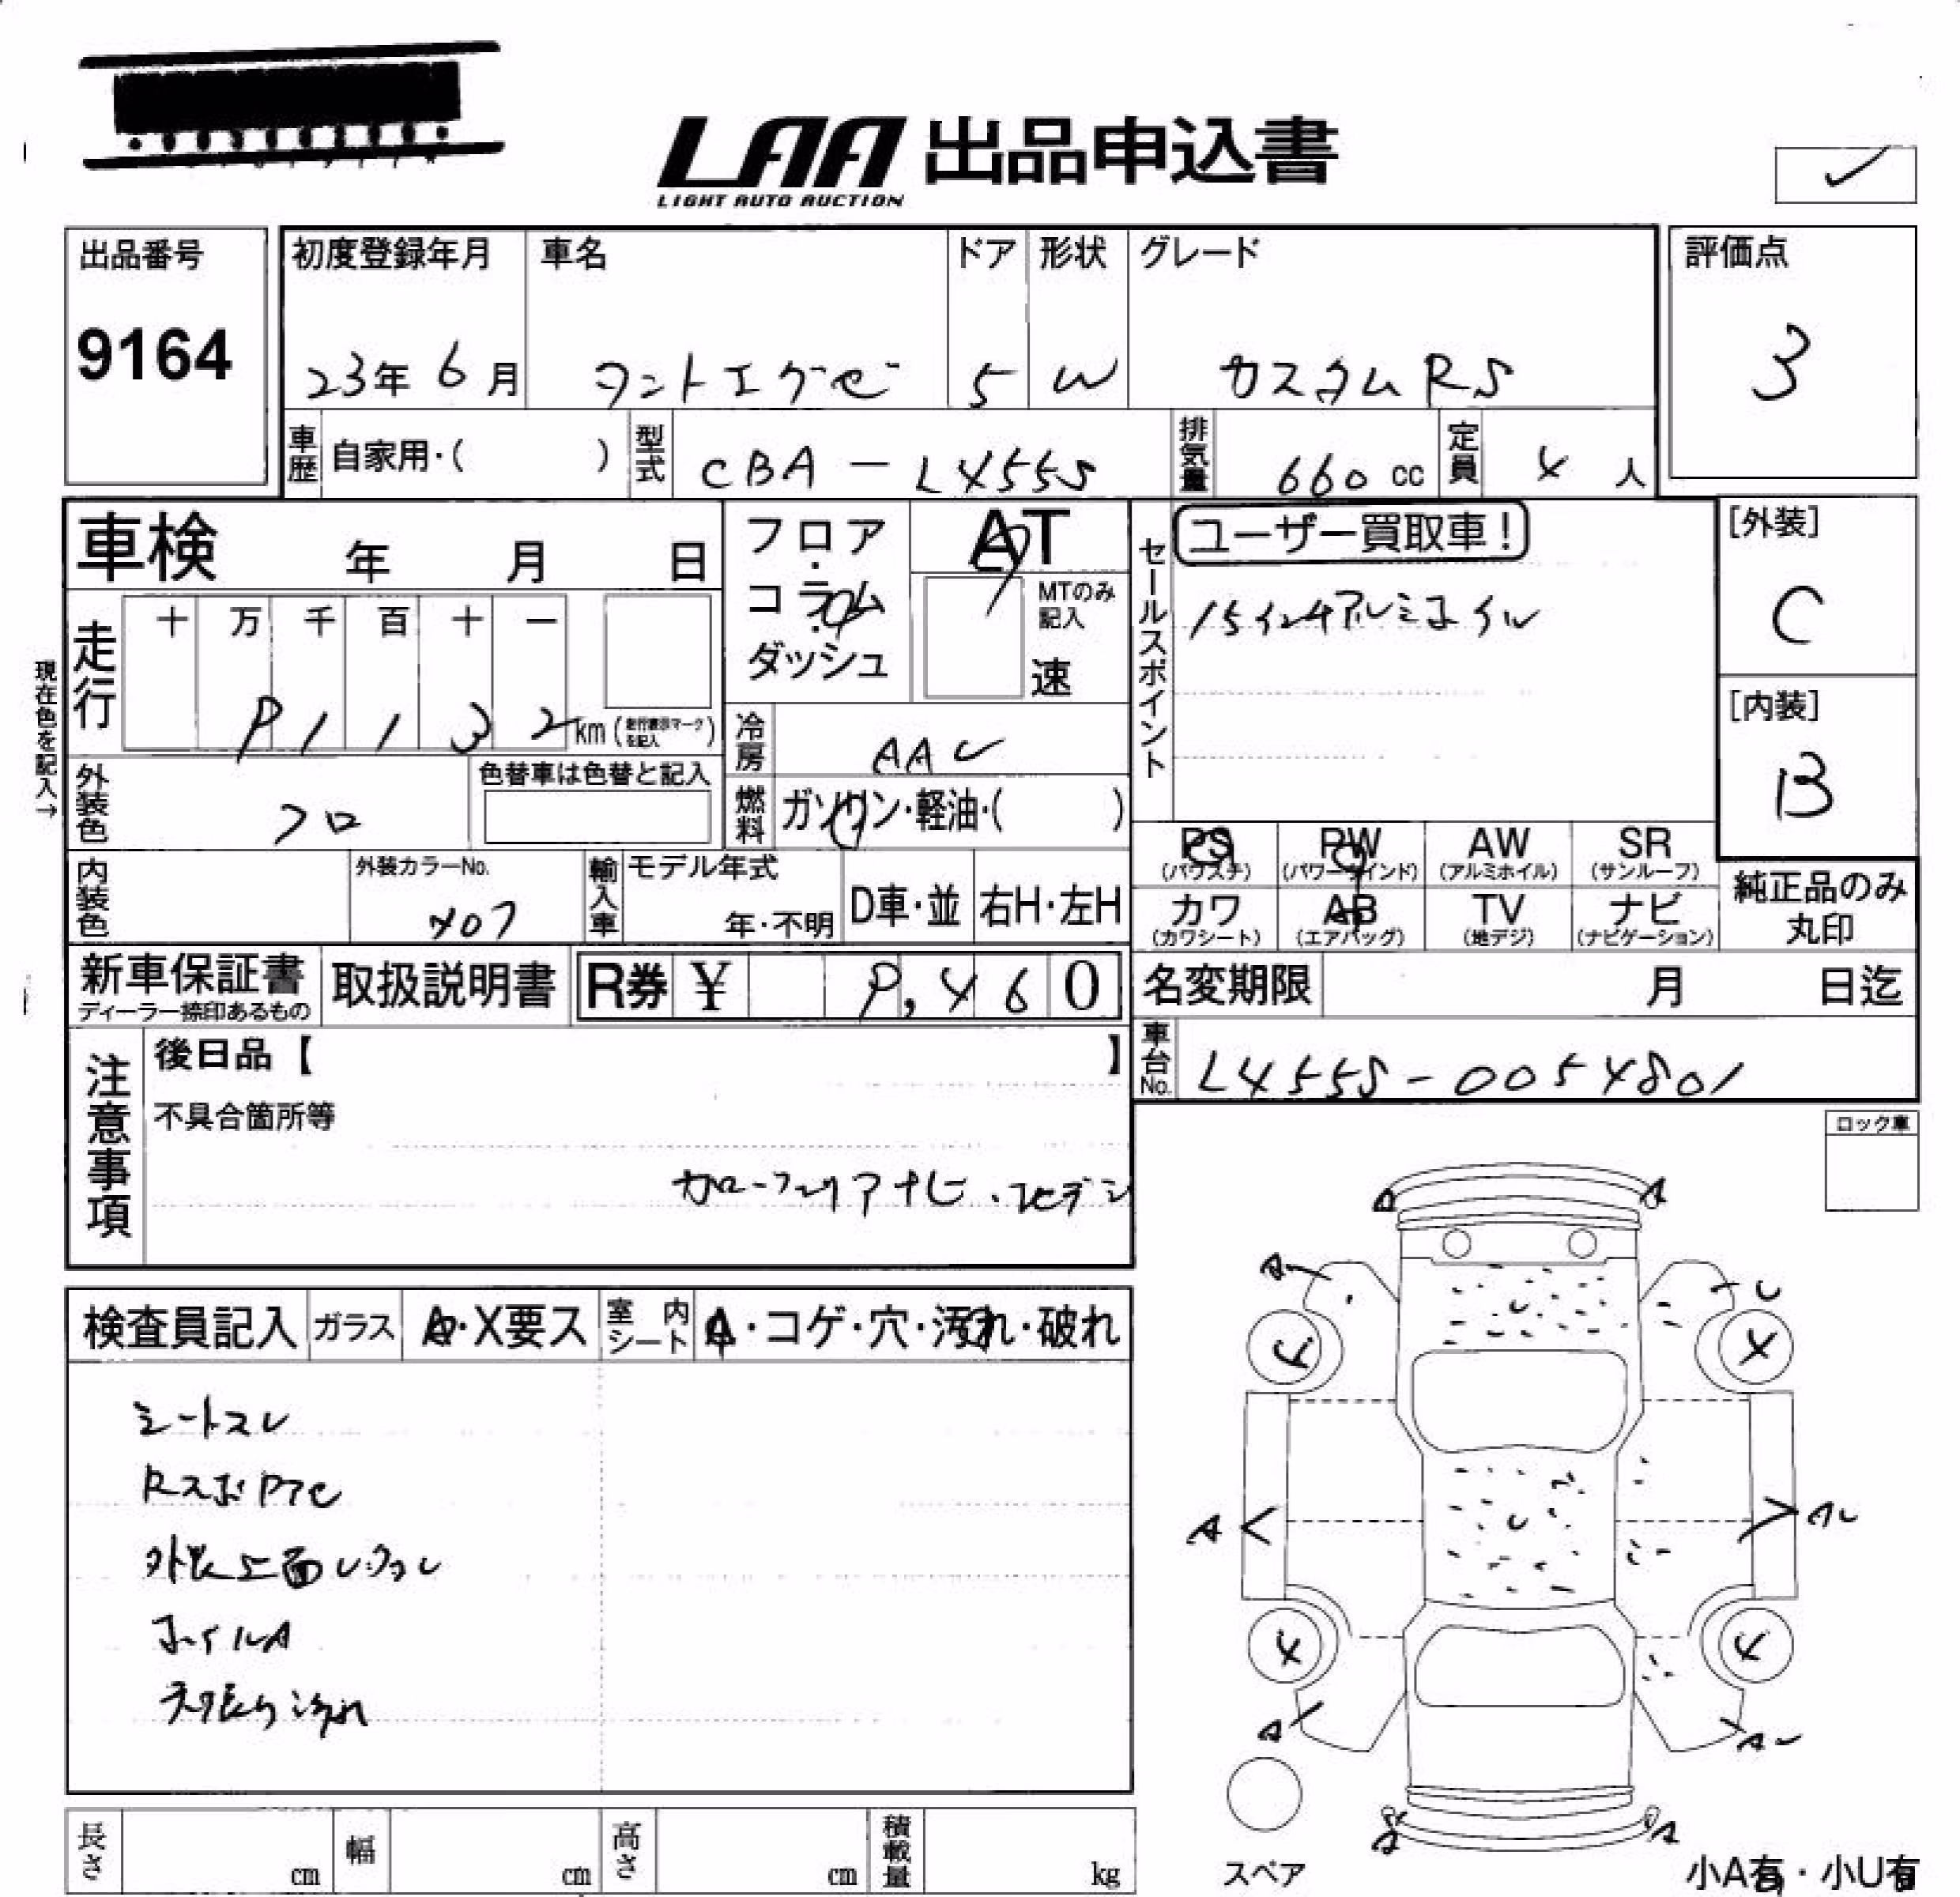 LAA 出品申込書
LIGHT AUTO AUCTION
出品番号
9164
初度登録年月
23年 6月
車名
タントエグゼ
ドア
5
形状
W
グレード
カスタム RS
評価点
3
車歴 自家用・( )
型式 CBA - L455S
排気量 660 cc
定員 4 人
車検 年 月 日
フロア・コラム・ダッシュ
AT
MTのみ記入
速
セールスポイント
ユーザー買取車!
15インチアルミホイル
[外装]
C
[内装]
B
現在色を記入→
走行 十 万 千 百 十 一
91132 km (走行表示マークを記入)
冷房 AAC
外装色 クロ
色替車は色替と記入
燃料 ガソリン・軽油・( )
PS (パワステ)
PW (パワーウインド)
AW (アルミホイル)
SR (サンルーフ)
内装色
外装カラーNo.
X07
輸入車 モデル年式
年・不明
D車・並
右H・左H
カワ (カワシート)
AB (エアバッグ)
TV (地デジ)
ナビ (ナビゲーション)
純正品のみ丸印
新車保証書
ディーラー捺印あるもの
取扱説明書
R券 ¥ 9,460
名変期限 月 日迄
注意事項
後日品【 】
不具合箇所等
車台No. L455S-0054801
ロック車
検査員記入
ガラス A・X要ス
室内シート A・コゲ・穴・汚れ・破れ
シートスレ
RスポPアセ
外装上面
ホイルA
天張り汚れ
A
A
A
U
A
A
A
A
A
スペア
小A有・小U有
長さ cm
幅 cm
高さ cm
積載量 kg